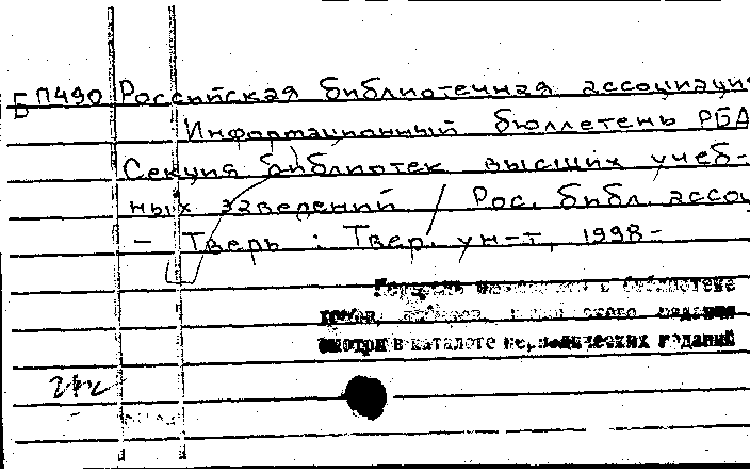 БП490 Российская библиотечная ассоциация
Информационный бюллетень РБА
Секция библиотек высших учеб-
ных заведений / Рос. библ. ассоц
- Тверь : Твер. ун-т, 1998-
Перечень в библиотеке
томов, этого издания
смотри в каталоге периодических изданий